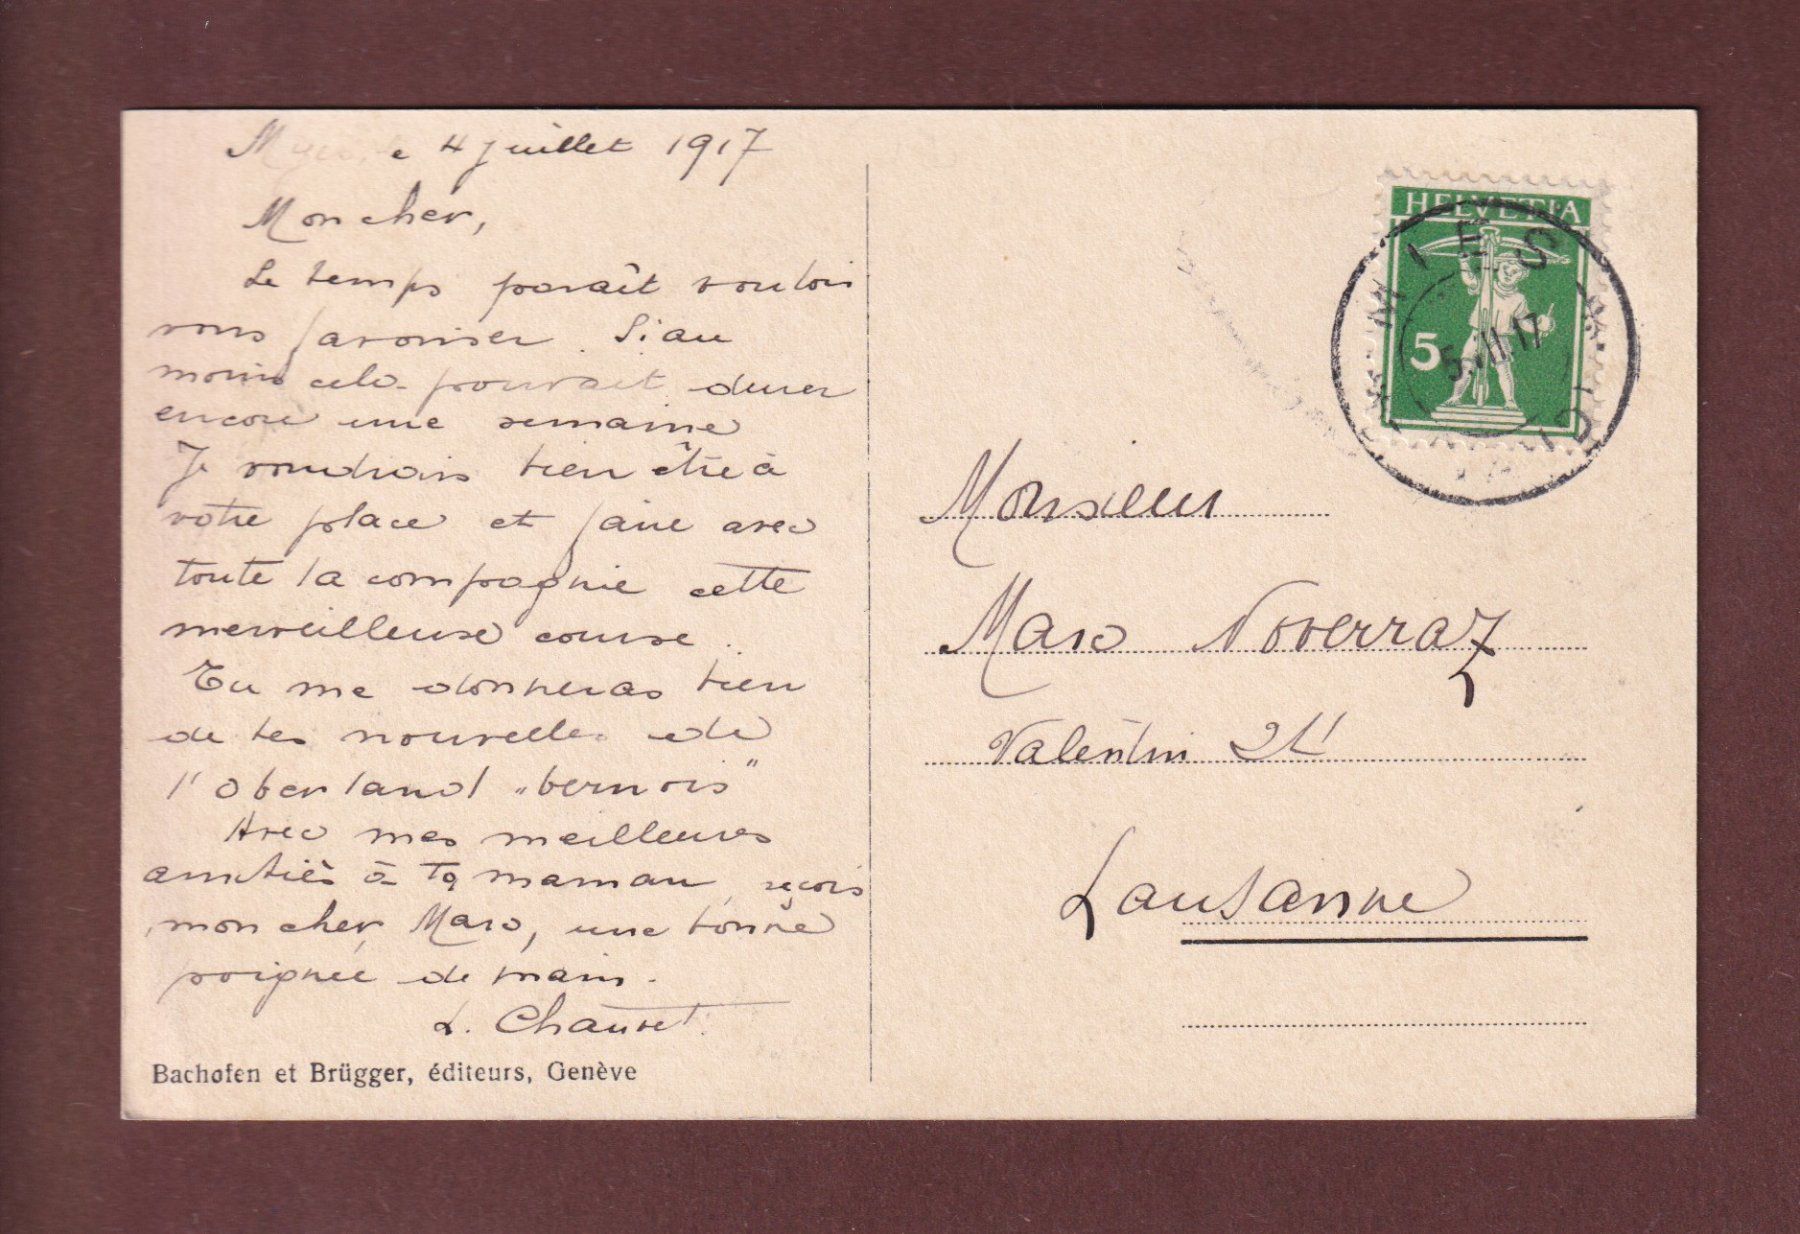 le 4 Juillet 1917
Mon cher,
Le temps paraît vouloir
vous favoriser. Si au
moins cela pourrait durer
encore une semaine
Je voudrais bien être à
votre place et faire avec
toute la compagnie cette
merveilleuse course.
Tu me donneras bien
de tes nouvelles de
l'Oberland „bernois"
Avec mes meilleures
amitiés à ta maman, reçois
mon cher Marc, une bonne
poignée de main.
L. Chauvet.
Bachofen et Brügger, éditeurs, Genève
HELVETIA
5
MIES
5.VII.17
Monsieur
Marc Noverraz
Valentin
Lausanne